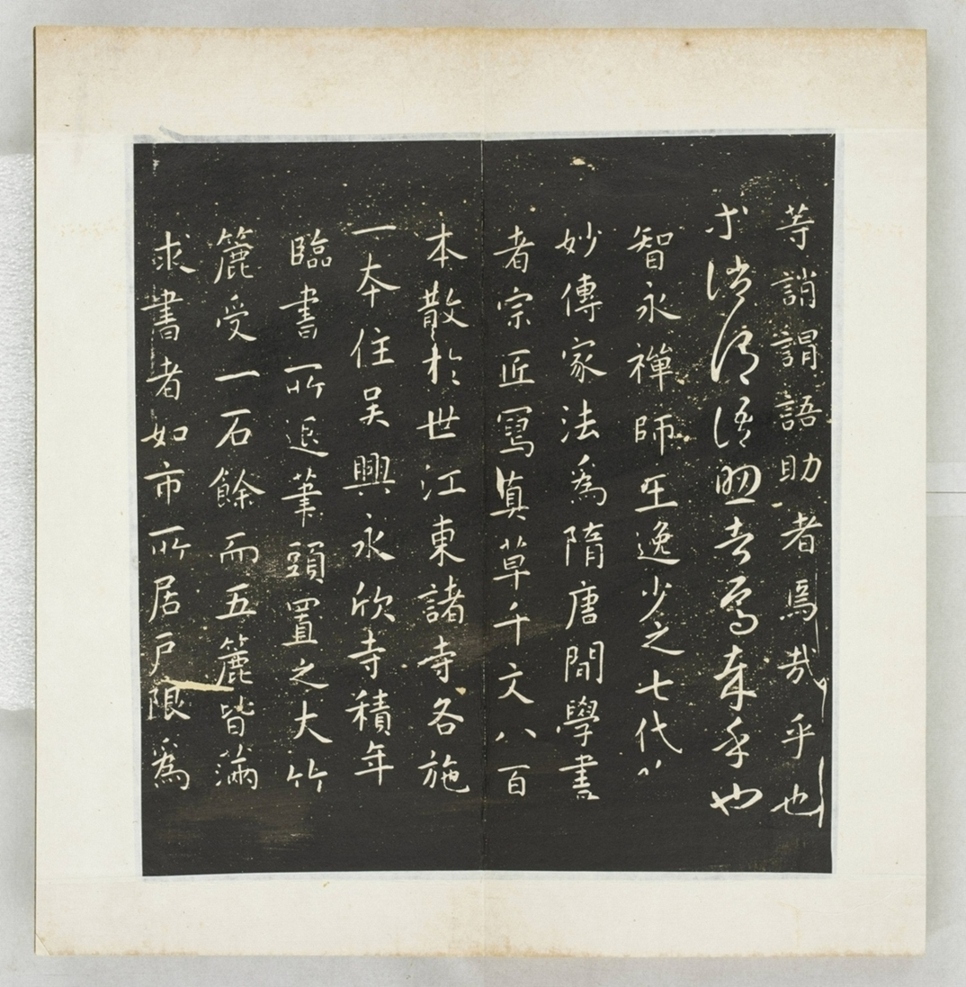 等誚謂語助者焉哉乎也
等誚謂語助者焉哉乎也
智永禪師王逸少之七代
妙傳家法為隋唐間學書
者宗匠寫真草千文八百
本散於世江東諸寺各施
一本住吳興永欣寺積年
臨書所退筆頭置之大竹
簏受一石餘而五簏皆滿
求書者如市所居戶限為